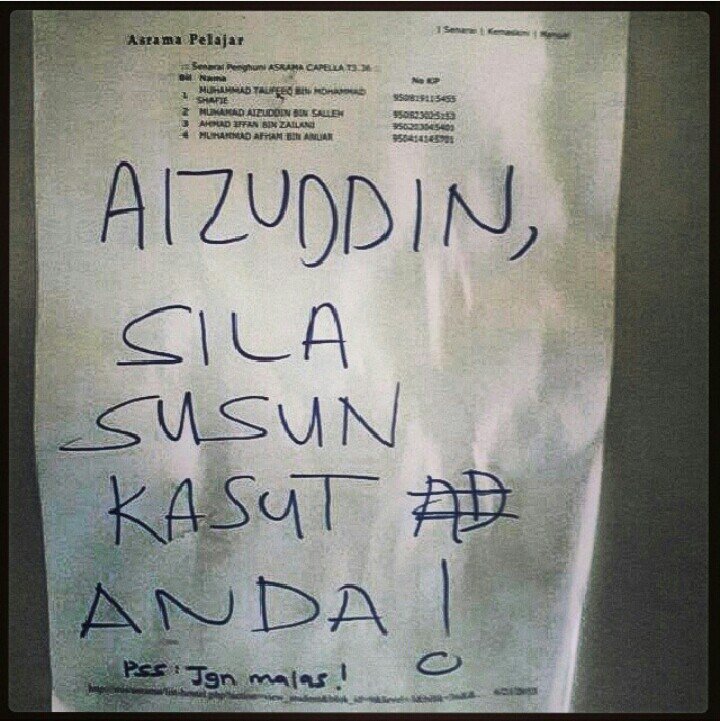 Asrama Pelajar
| Senarai | Kemaskini | Manual
:: Senarai Penghuni ASRAMA CAPELLA T3.36 ::
Bil Nama No KP
1 MUHAMMAD TAUFEEQ BIN MOHAMMAD SHAFIE 950819115455
2 MUHAMAD AIZUDDIN BIN SALLEH 950823025153
3 AHMAD IFFAN BIN ZAILANI 950203045401
4 MUHAMMAD AFHAM BIN ANUAR 950414145701
AIZUDDIN,
SILA
SUSUN
KASUT
ANDA!
PSS: Jgn malas!